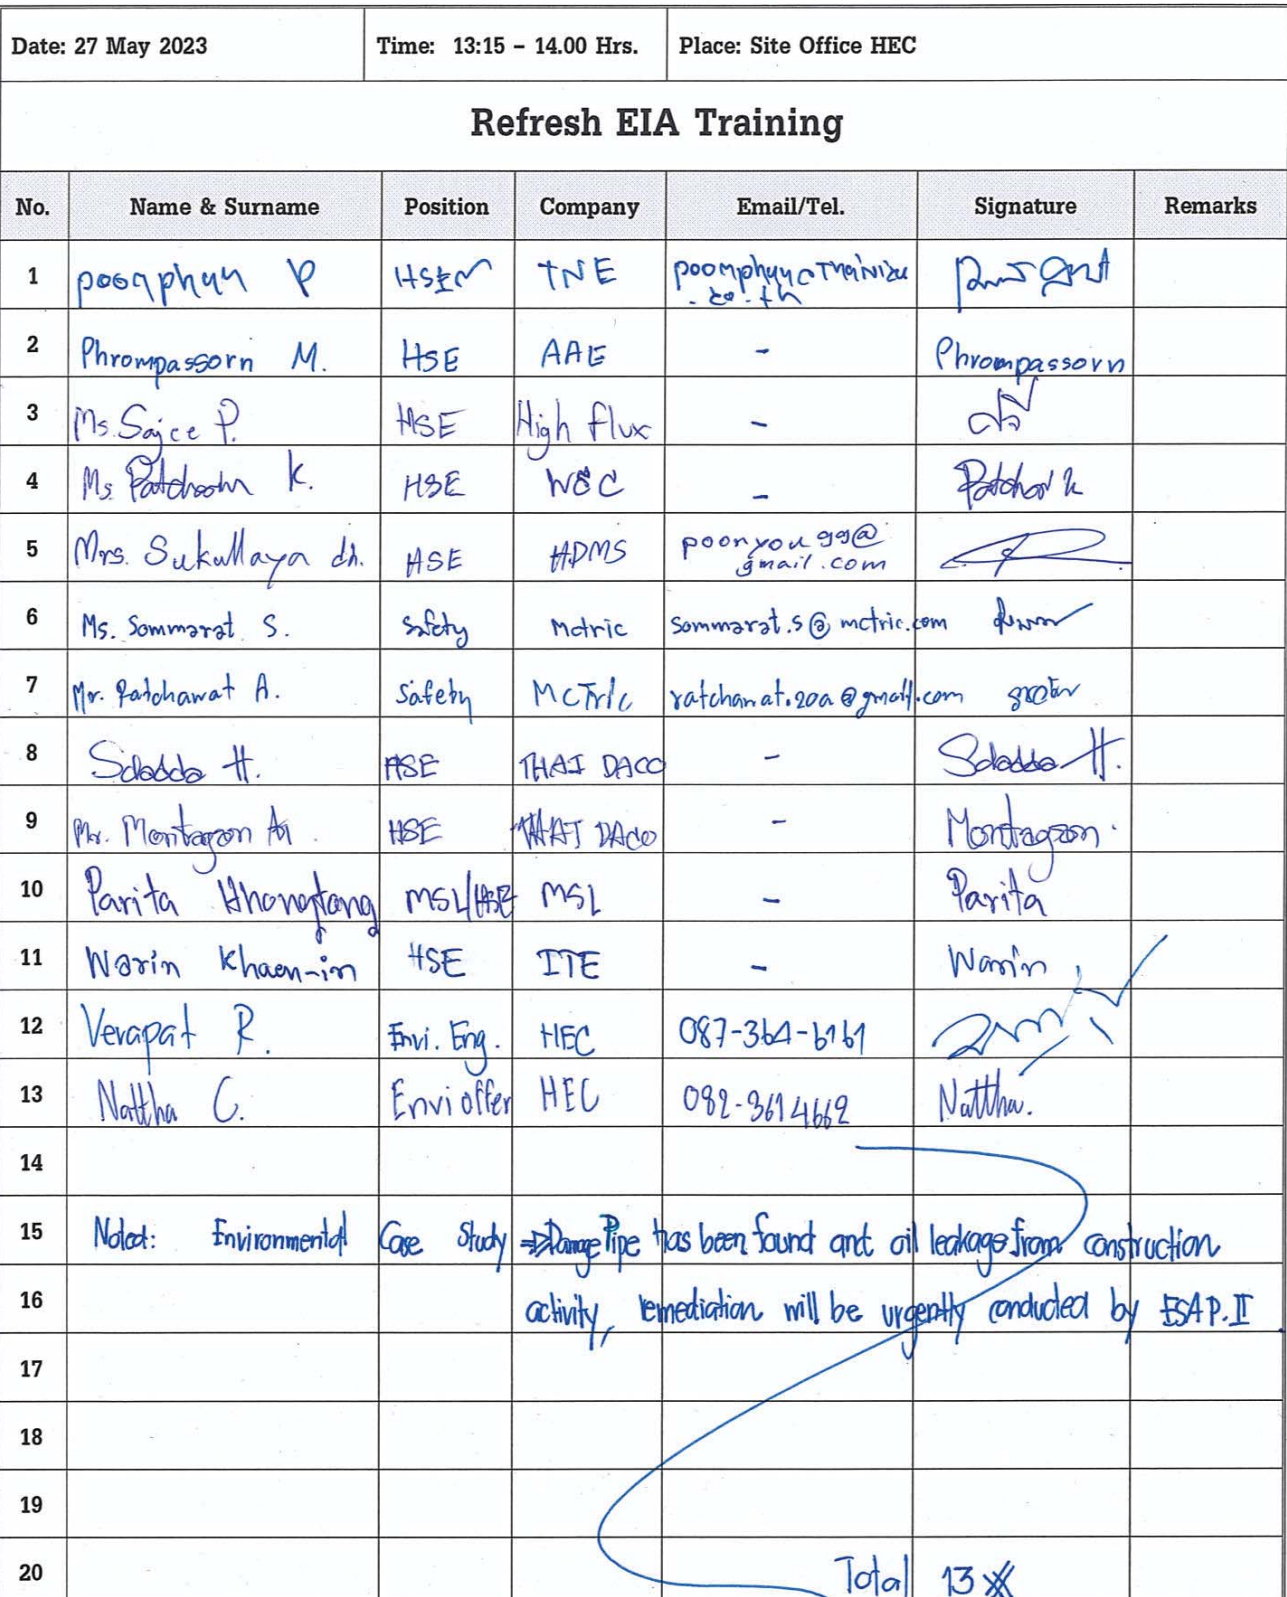 Date: 27 May 2023 Time: 13:15 – 14.00 Hrs. Place: Site Office HEC
Refresh EIA Training
No. Name & Surname Position Company Email/Tel. Signature Remarks
1 P TNE
.co.th
2 Phrompassorn M. HSE AAE - Phrompassorn
3 Ms. P. HSE High flux -
4 Ms. K. HSE -
5 Mrs. Sukullaya HSE HDMS poonyou99@
gmail.com
6 Ms. Sommarat S. Safety Mctric sommarat.s@mctric.com
7 Mr. A. Safety McTric
8 H. HSE THAI DACO - H.
9 Mr. HSE THAI DACO -
10 Parita MSL/HSE MSL - Parita
11 Warin Khaen-in HSE ITE - Warin
12 Verapat R. Envi. Eng. HEC 087-364-6161
13 Nattha C. Envi offer HEC 082-3614662 Nattha.
14
15 Noted: Environmental Case Study ⇒ Pipe has been found and oil leakage from construction
16 activity, remediation will be urgently conducted by ESAP.II
17
18
19
20 Total 13